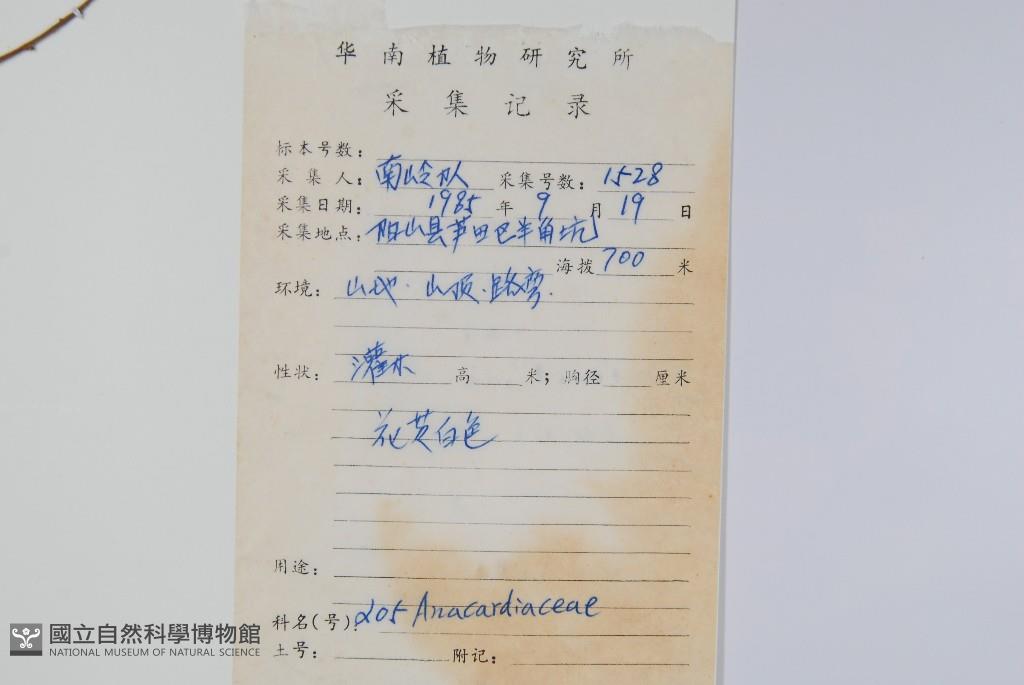 华南植物研究所
采集记录
标本号数：
采集人：南岭队 采集号数：1528
采集日期：1985年9月19日
采集地点：阳山县芦田巴羊角坑
海拨700米
环境：山地．山顶．路旁．
性状：灌木 高 米；胸径 厘米
花黄白色
用途：
科名(号)：205 Anacardiaceae
土号： 附记：
國立自然科學博物館
NATIONAL MUSEUM OF NATURAL SCIENCE